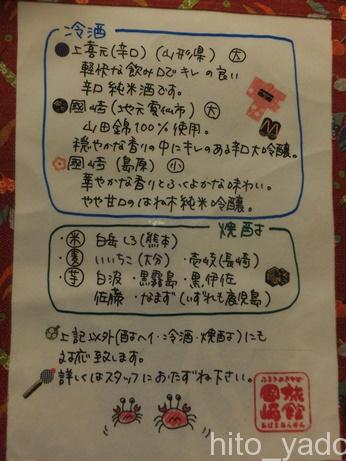 冷酒
上喜元(辛口)(山形県) 大
軽快な飲み口でキレの良い
辛口純米酒です。
國崎(地元雲仙市) 大
山田錦100%使用。
穏やかな香りの中にキレのある辛口大吟醸。
國崎(島原) 小
華やかな香りとふくよかな味わい。
やや甘口のはね木純米吟醸。
焼酎
・米 白岳しろ(熊本)
・麦 いいちこ(大分)・壱岐(長崎)
・芋 白波・黒霧島・黒伊佐
佐藤・なまず(いずれも鹿児島)
上記以外(酎ハイ・冷酒・焼酎)にも
対応致します。
詳しくはスタッフにおたずね下さい。
旅館
國崎
おばまおんせん
hito_yado